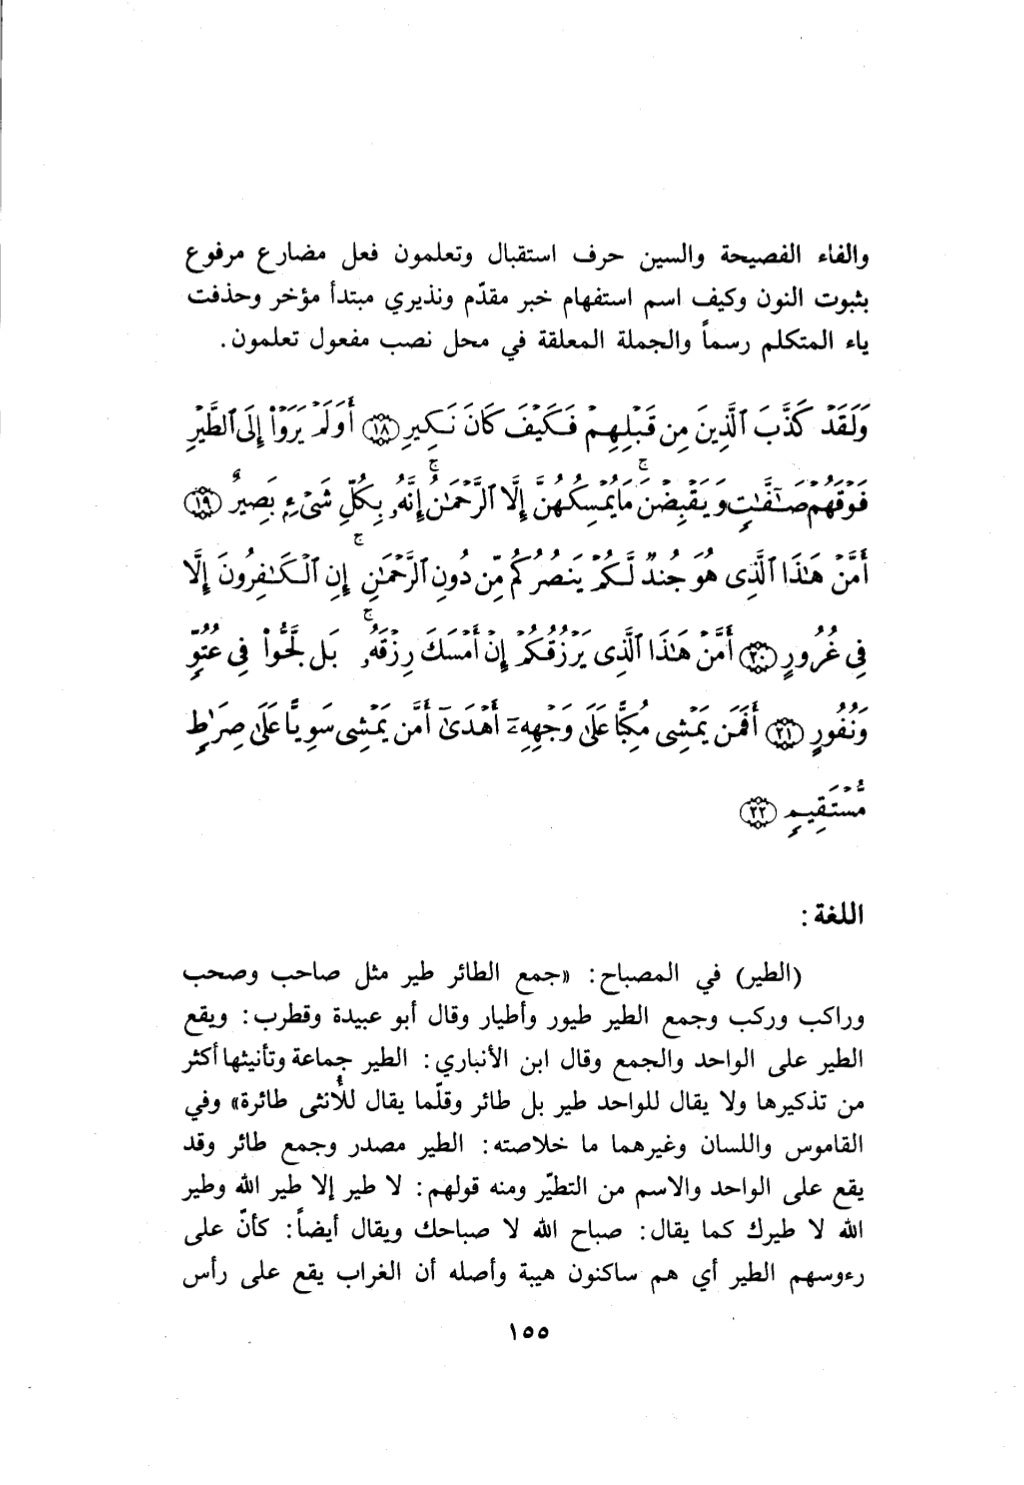 والفاء الفصيحة والسين حرف استقبال وتعلمون فعل مضارع مرفوع
بثبوت النون وكيف اسم استفهام خبر مقدّم ونذيري مبتدأ مؤخر وحذفت
ياء المتكلم رسماً والجملة المعلقة في محل نصب مفعول تعلمون.
وَلَقَدْ كَذَّبَ ٱلَّذِينَ مِن قَبْلِهِمْ فَكَيْفَ كَانَ نَكِيرِ ﴿١٨﴾ أَوَلَمْ يَرَوْا۟ إِلَى ٱلطَّيْرِ
فَوْقَهُمْ صَٰٓفَّٰتٍ وَيَقْبِضْنَ ۚ مَا يُمْسِكُهُنَّ إِلَّا ٱلرَّحْمَٰنُ ۚ إِنَّهُۥ بِكُلِّ شَىْءٍۭ بَصِيرٌ ﴿١٩﴾
أَمَّنْ هَٰذَا ٱلَّذِى هُوَ جُندٌ لَّكُمْ يَنصُرُكُم مِّن دُونِ ٱلرَّحْمَٰنِ ۚ إِنِ ٱلْكَٰفِرُونَ إِلَّا
فِى غُرُورٍ ﴿٢٠﴾ أَمَّنْ هَٰذَا ٱلَّذِى يَرْزُقُكُمْ إِنْ أَمْسَكَ رِزْقَهُۥ ۚ بَل لَّجُّوا۟ فِى عُتُوٍّ
وَنُفُورٍ ﴿٢١﴾ أَفَمَن يَمْشِى مُكِبًّا عَلَىٰ وَجْهِهِۦٓ أَهْدَىٰٓ أَمَّن يَمْشِى سَوِيًّا عَلَىٰ صِرَٰطٍ
مُّسْتَقِيمٍ ﴿٢٢﴾
اللغة:
(الطير) في المصباح: «جمع الطائر طير مثل صاحب وصحب
وراكب وركب وجمع الطير طيور وأطيار وقال أبو عبيدة وقطرب: ويقع
الطير على الواحد والجمع وقال ابن الأنباري: الطير جماعة وتأنيثها أكثر
من تذكيرها ولا يقال للواحد طير بل طائر وقلّما يقال للأُنثى طائرة» وفي
القاموس واللسان وغيرهما ما خلاصته: الطير مصدر وجمع طائر وقد
يقع على الواحد والاسم من التطيّر ومنه قولهم: لا طير إلا طير الله وطير
الله لا طيرك كما يقال: صباح الله لا صباحك ويقال أيضاً: كأنّ على
رءوسهم الطير أي هم ساكنون هيبة وأصله أن الغراب يقع على رأس
١٥٥